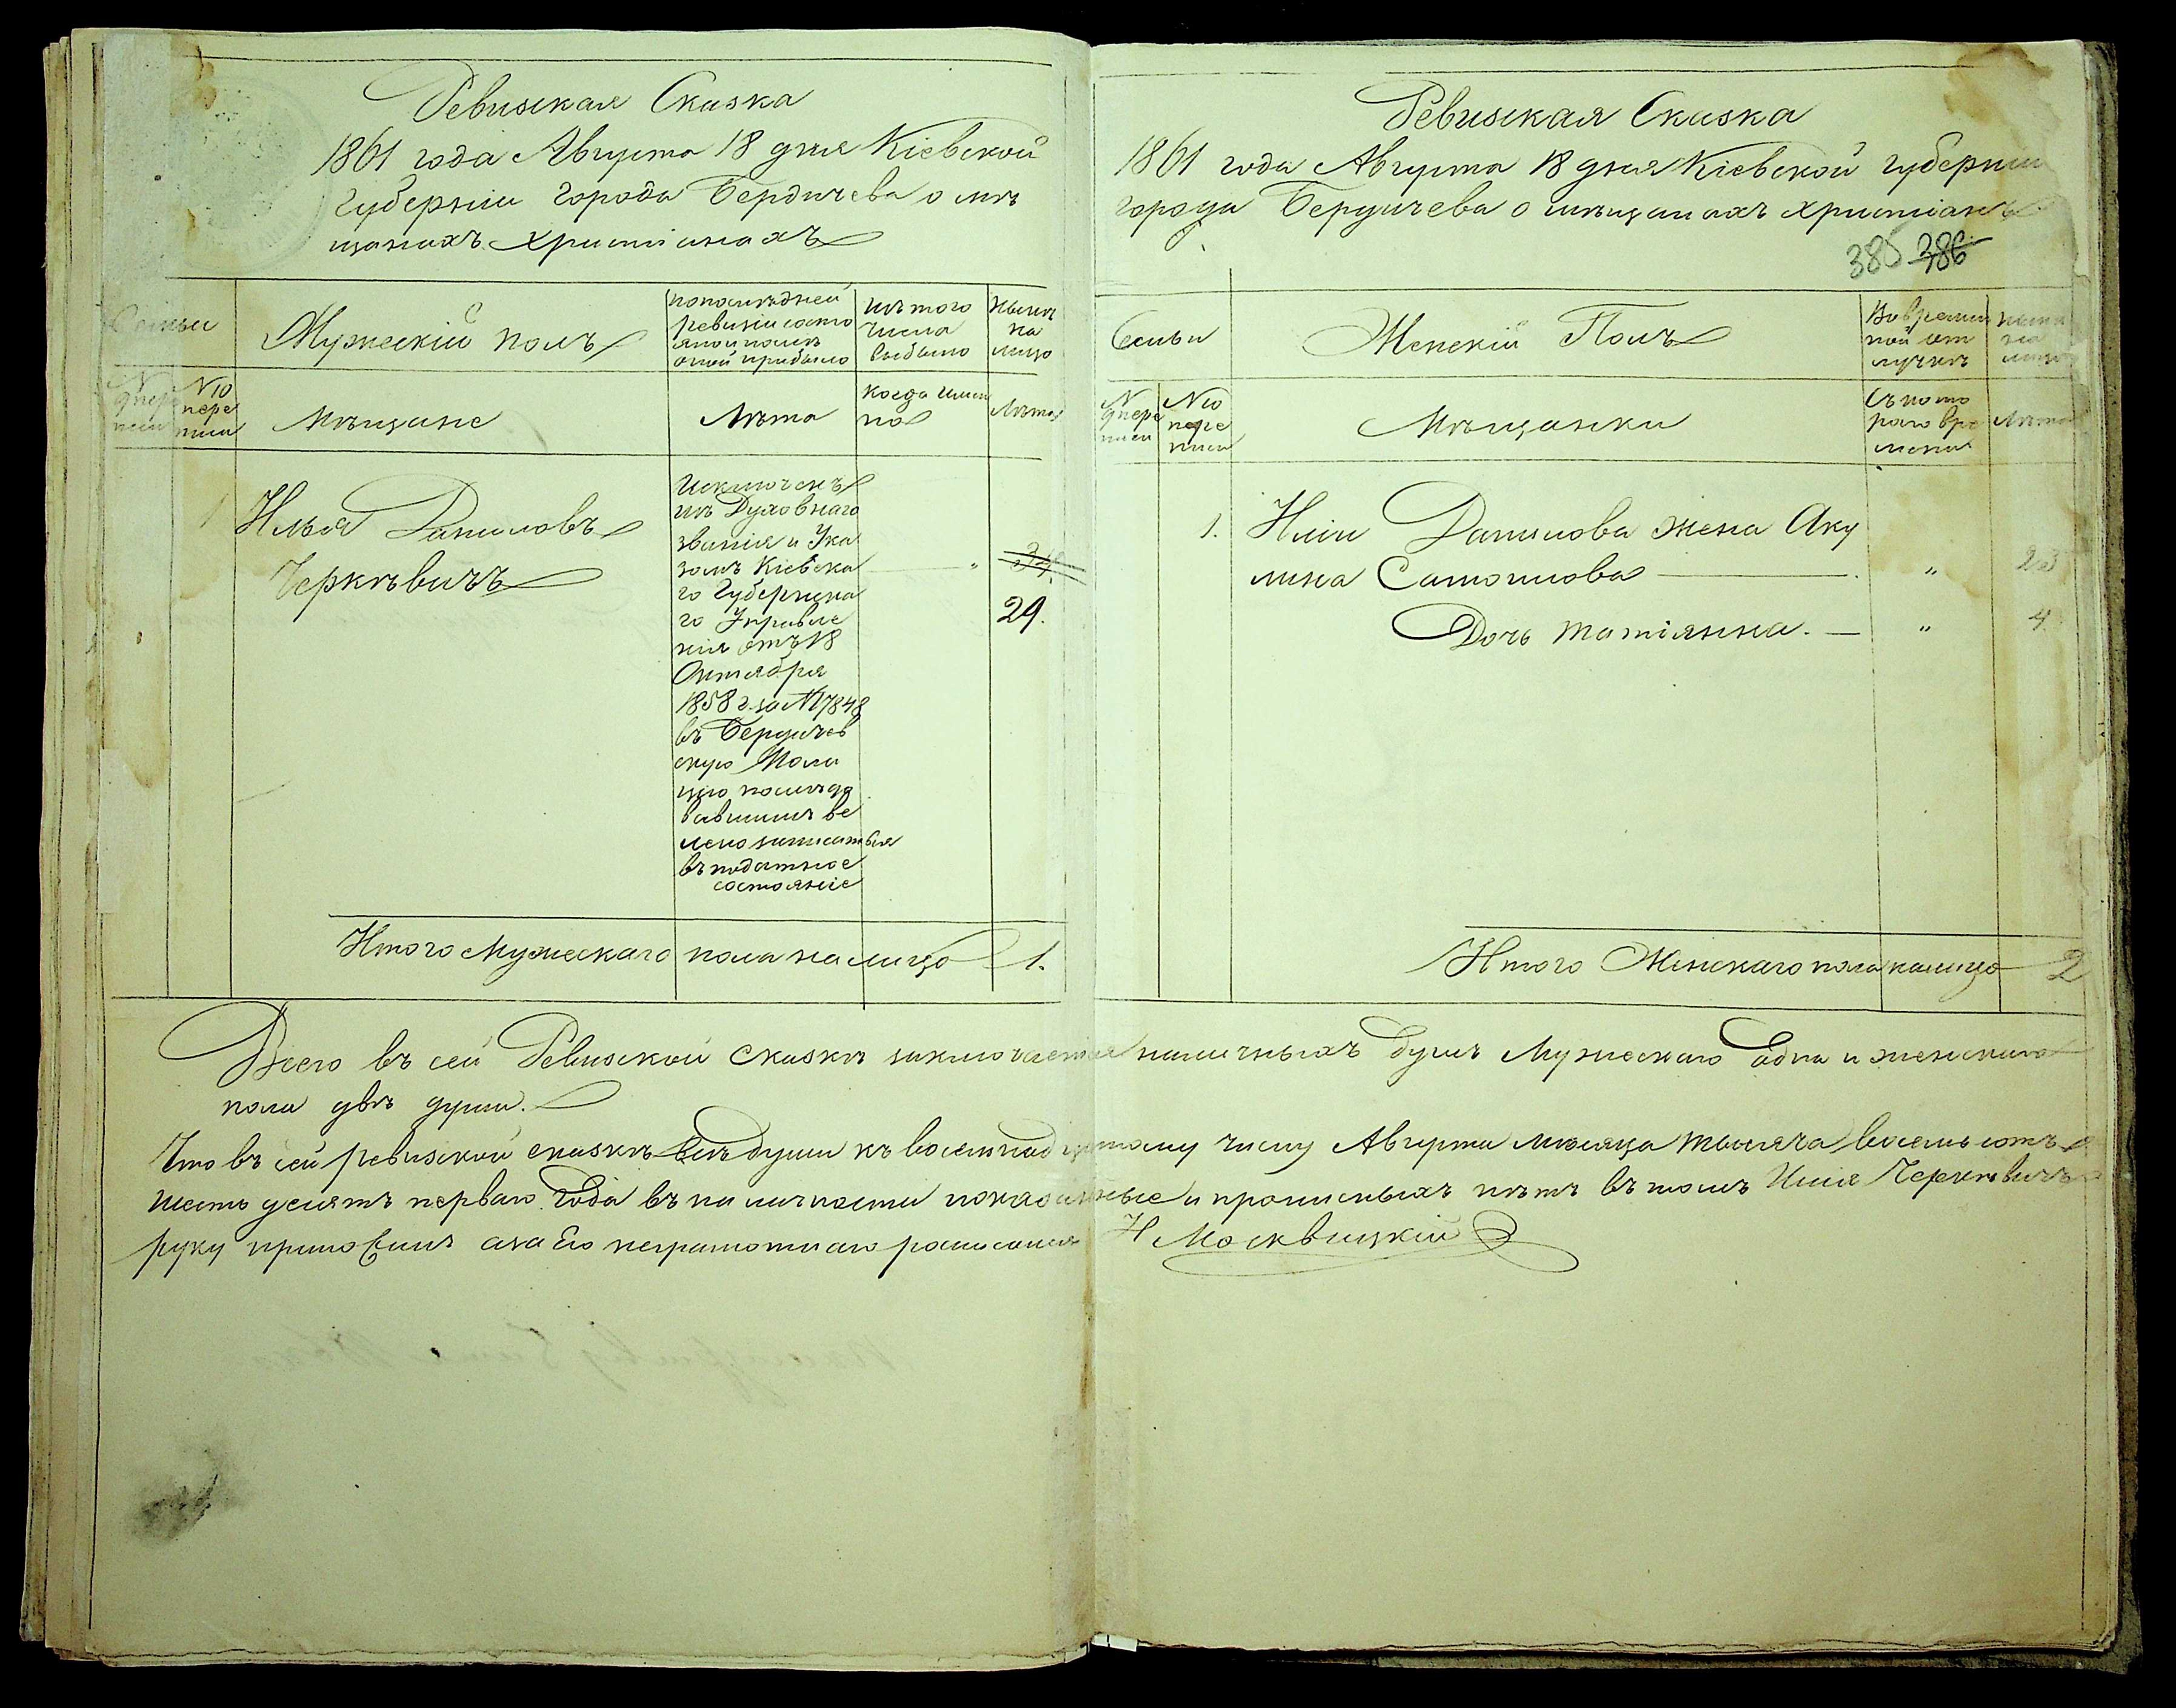 Ревизская Сказка
1861 года Августа 18 дня Кіевской
Губерніи города Бердичева о мѣ
щанахъ христіанахъ
Семьи
Мужескій полъ
по послѣдней
ревизіи состо
яло и послѣ
оной прибыло
изъ того
числа
выбыло
Нынѣ
на
лицо
№ 10
пере
писи
Мѣщане
Лѣта
когда имен
но
Лѣта
1
Илья Даниловъ
Черкѣвичъ
Исключенъ
изъ Духовнаго
званія и Ука
зомъ Кіевска
го Губернска
го Правле
нія отъ 18
Октября
1858 г. за № 17848
въ Бердичев
скую Поли
цію послѣдо
вавшимъ ве
лено записаться
въ податное
состояніе
"
29.
Итого Мужескаго пола на лицо 1.
Ревизская Сказка
1861 года Августа 18 дня Кіевской губерніи
города Бердичева о мѣщанахъ христіанъ
385 386
Семьи
Женскій Полъ
Во времен
ной от
лучкѣ
на
лицо
№
9 пере
писи
№ 10
пере
писи
Мѣщанки
Съ кото
раго вре
мени
Лѣта
1. Иліи Данилова жена Аку
лина Самойлова " 23
Дочь Татіянна. " 4
Итого Женскаго пола налицо 2
Всего въ сей Ревизской Сказкѣ заключается наличныхъ душъ Мужескаго одна и женскаго
пола двѣ души.
Что въ сей ревизской сказкѣ всѣ души къ восемнадцатому числу Августа мѣсяца тысяча восемь сотъ
шесть десятъ перваго Года въ наличности показанные и прописныхъ нѣтъ въ томъ Илія Черкѣвичъ
руку приложилъ а за Его неграмотнаго росписался Н Москвицкій